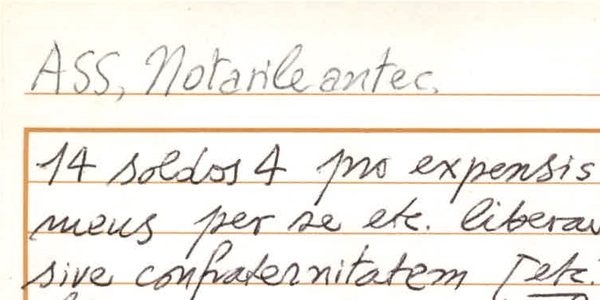 ASS, Notarile antec.
14 soldos 4 pro expensis
meus per se etc. liberav
sive confraternitatem [etc.